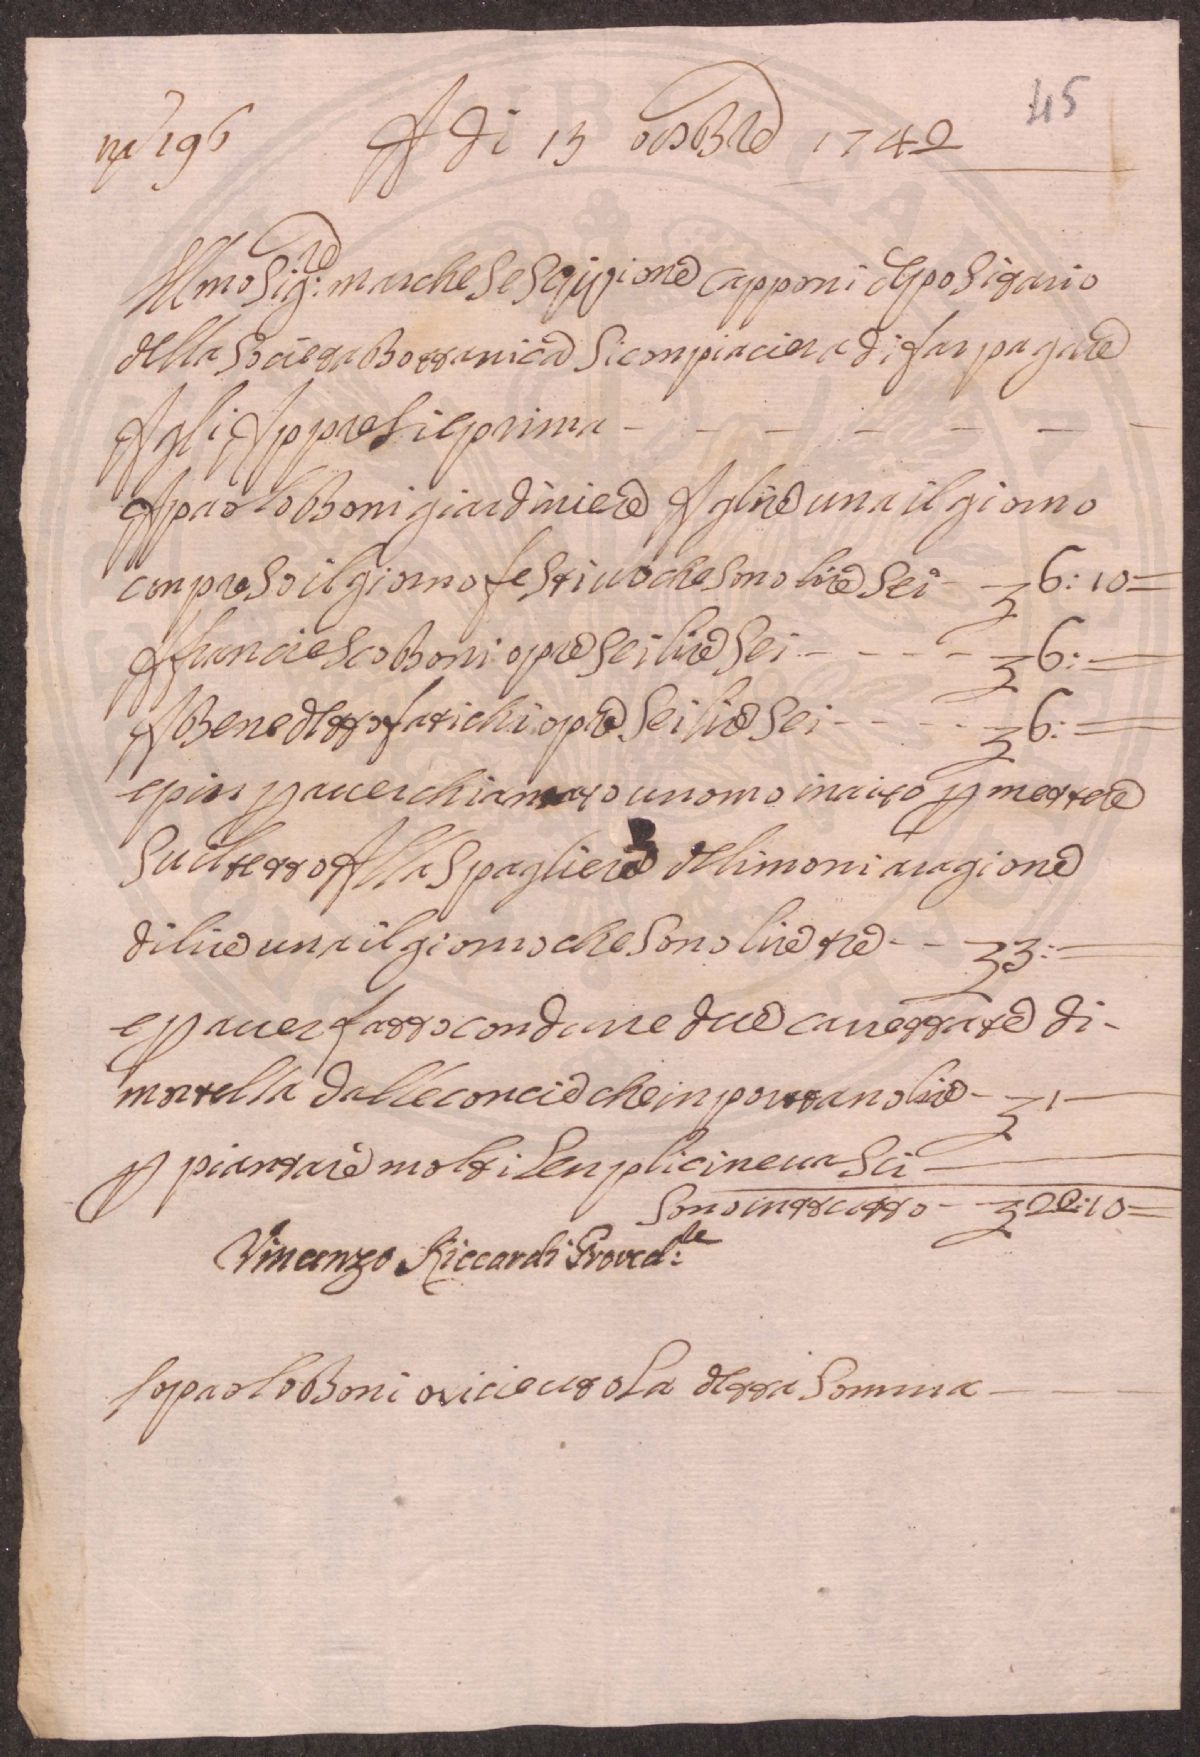 45
n° 196 A di 13 ottobre 1742
Illmo Sig:re marchese Scipione Capponi depositario
della Societa Bottanica Si compiaciera di far pagare
A gli Appresi e prima
A paolo Boni giardiniere A lire una il giorno
conpreso il giorno festiuo che sono lire Sei 6: 10
A franciesco Boni opre Sei lire Sei 6:
A Benedetto fatichi opre Sei lire Sei 6:
e piu p auer chiamato un omo in aito p mettere
Su il tetto Alla Spagliera de limoni a ragione
di lire una il giorno che sono lire tre 3:
e p auer fatto condurre due carrettate di
mortella dalle concie che inportano lire 1
p piantare molti Senplici ne uasi
Sono in tutto 22: 10
Vincenzo Riccardi Proved:re
Io paolo Boni o riceuto La detta Somma